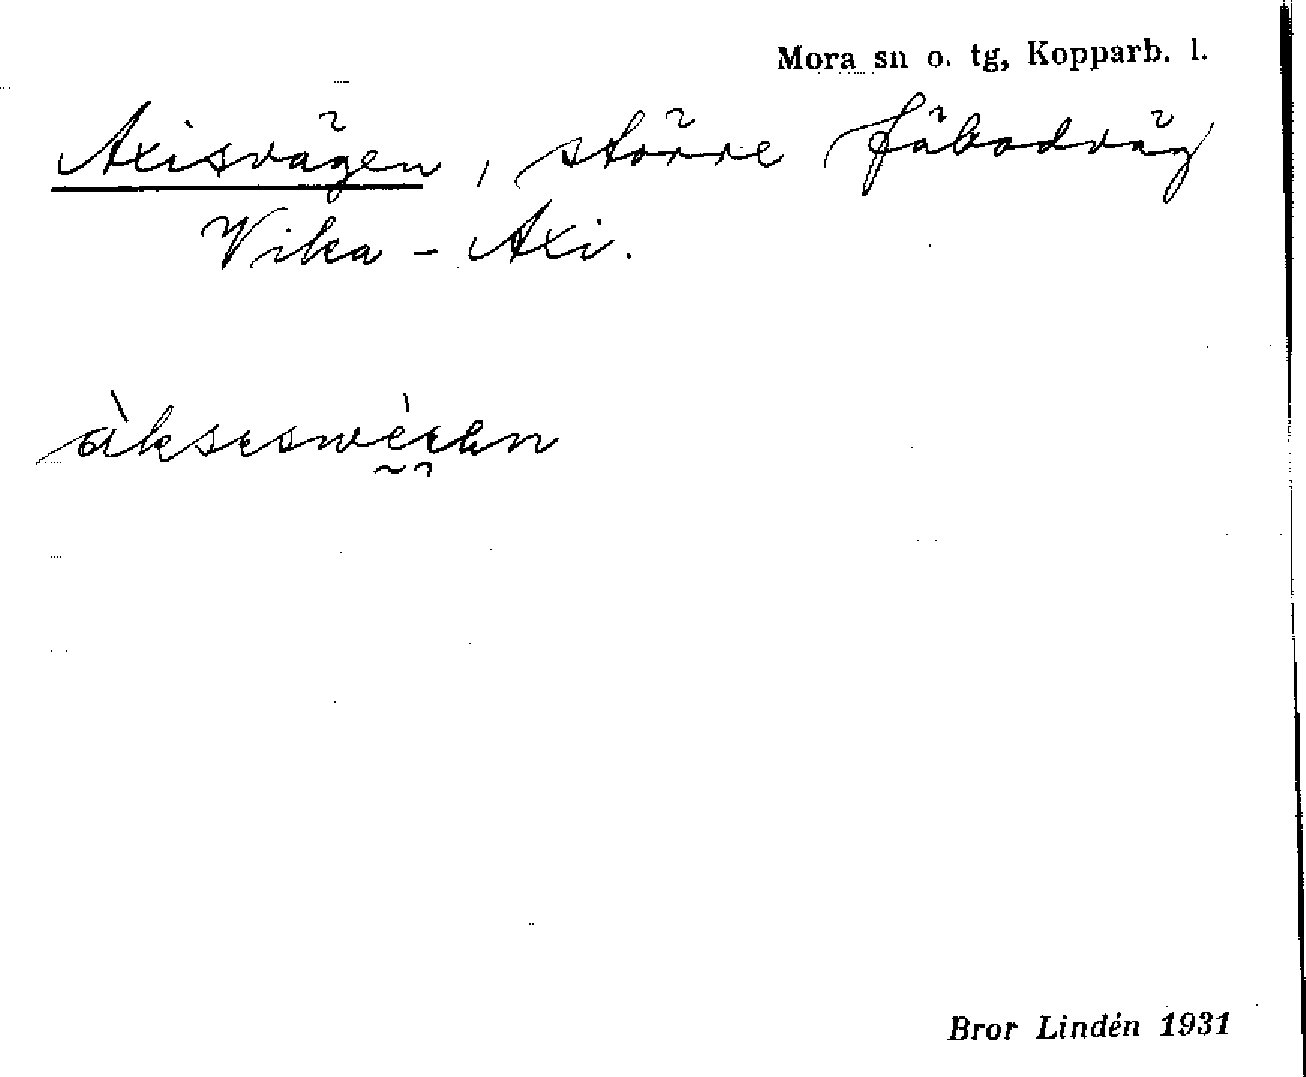 Mora sn o. tg, Kopparb. l.
Axisvägen, större fäbodväg
Vika - Axi.
àksɩswḛ̀ɩ̯ɛn
Bror Lindén 1931